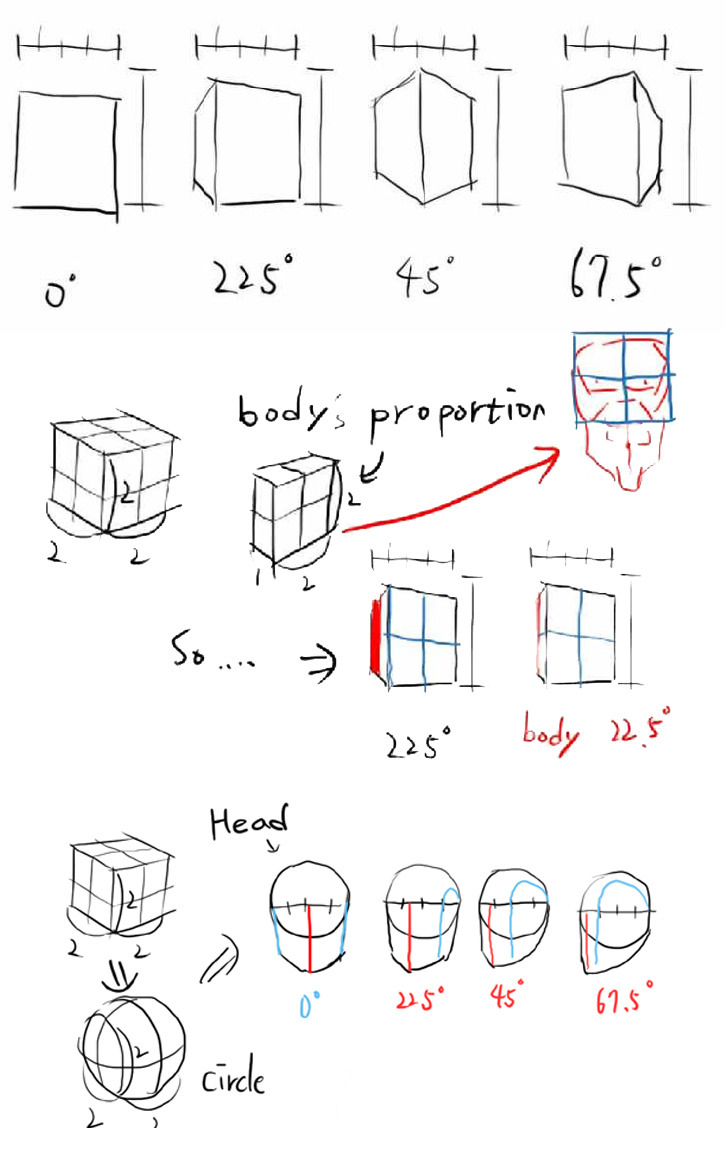 0°
22.5°
45°
67.5°
body's proportion
2
2
2
2
1
2
So .... ⇒
22.5°
body 22.5°
Head
2
2
2
0°
22.5°
45°
67.5°
2
circle
2